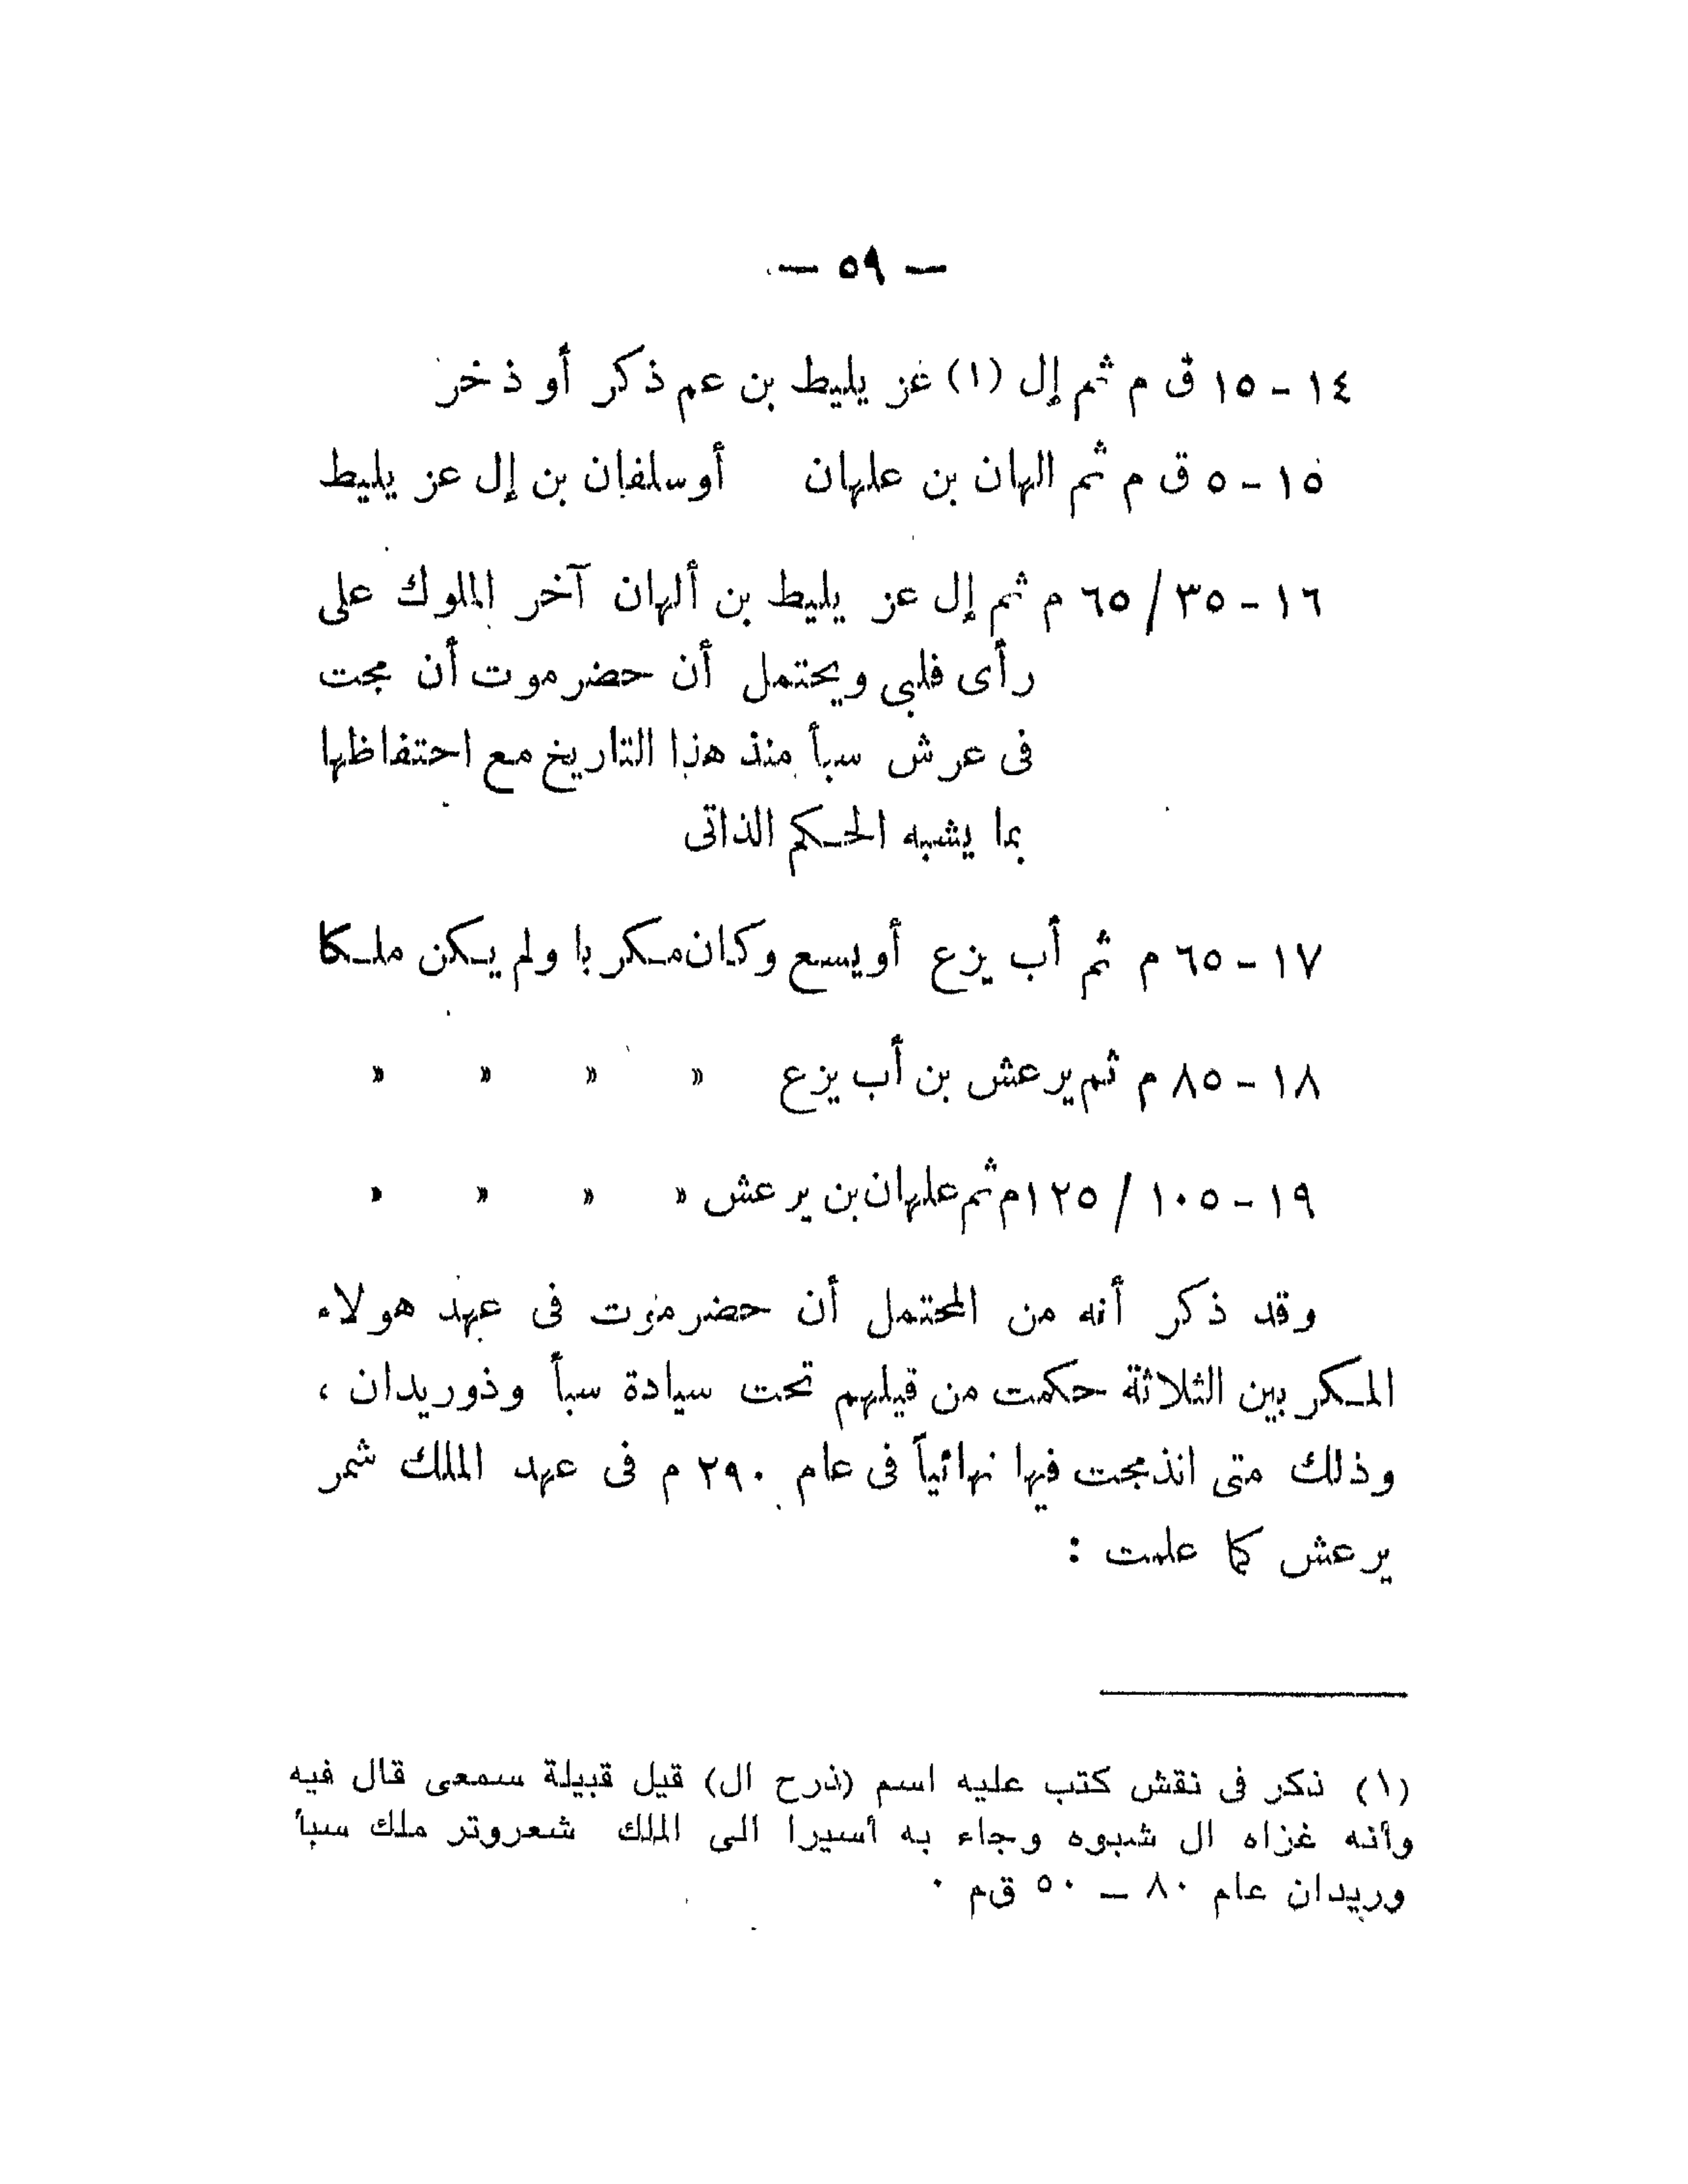 — ٥٩ —
١٤ - ١٥ ق م ثم إل (١) غز يليط بن عم ذكر أو ذخر
١٥ - ٥ ق م ثم الهان بن علهان أوسلفان بن إل عز يليط
١٦ - ٣٥ / ٦٥ م ثم إل عز يليط بن ألهان آخر الملوك على
رأى فلبى ويحتمل أن حضرموت أن مجت
فى عرش سبأ منذ هذا التاريخ مع احتفاظها
بما يشبه الحكم الذاتى
١٧ - ٦٥ م ثم أب يزع أويسع وكان مكربا ولم يكن ملكا
١٨ - ٨٥ م ثم يرعش بن أب يزع » » » »
١٩ - ١٠٥ / ١٢٥م ثم علهان بن يرعش » » » »
وقد ذكر أنه من المحتمل أن حضرموت فى عهد هولاء
المكربين الثلاثة حكمت من قيلهم تحت سيادة سبأ وذوريدان ،
وذلك متى انذمجت فيها نهائياً فى عام ٢٩٠ م فى عهد الملك شمر
يرعش كما علمت :
(١) ذكر فى نقش كتب عليه اسم (ذرح ال) قيل قبيلة سمعى قال فيه
وأنه غزاه ال شبوه وجاء به أسيرا الى الملك شعروتر ملك سبأ
وريدان عام ٨٠ — ٥٠ ق٠م ٠